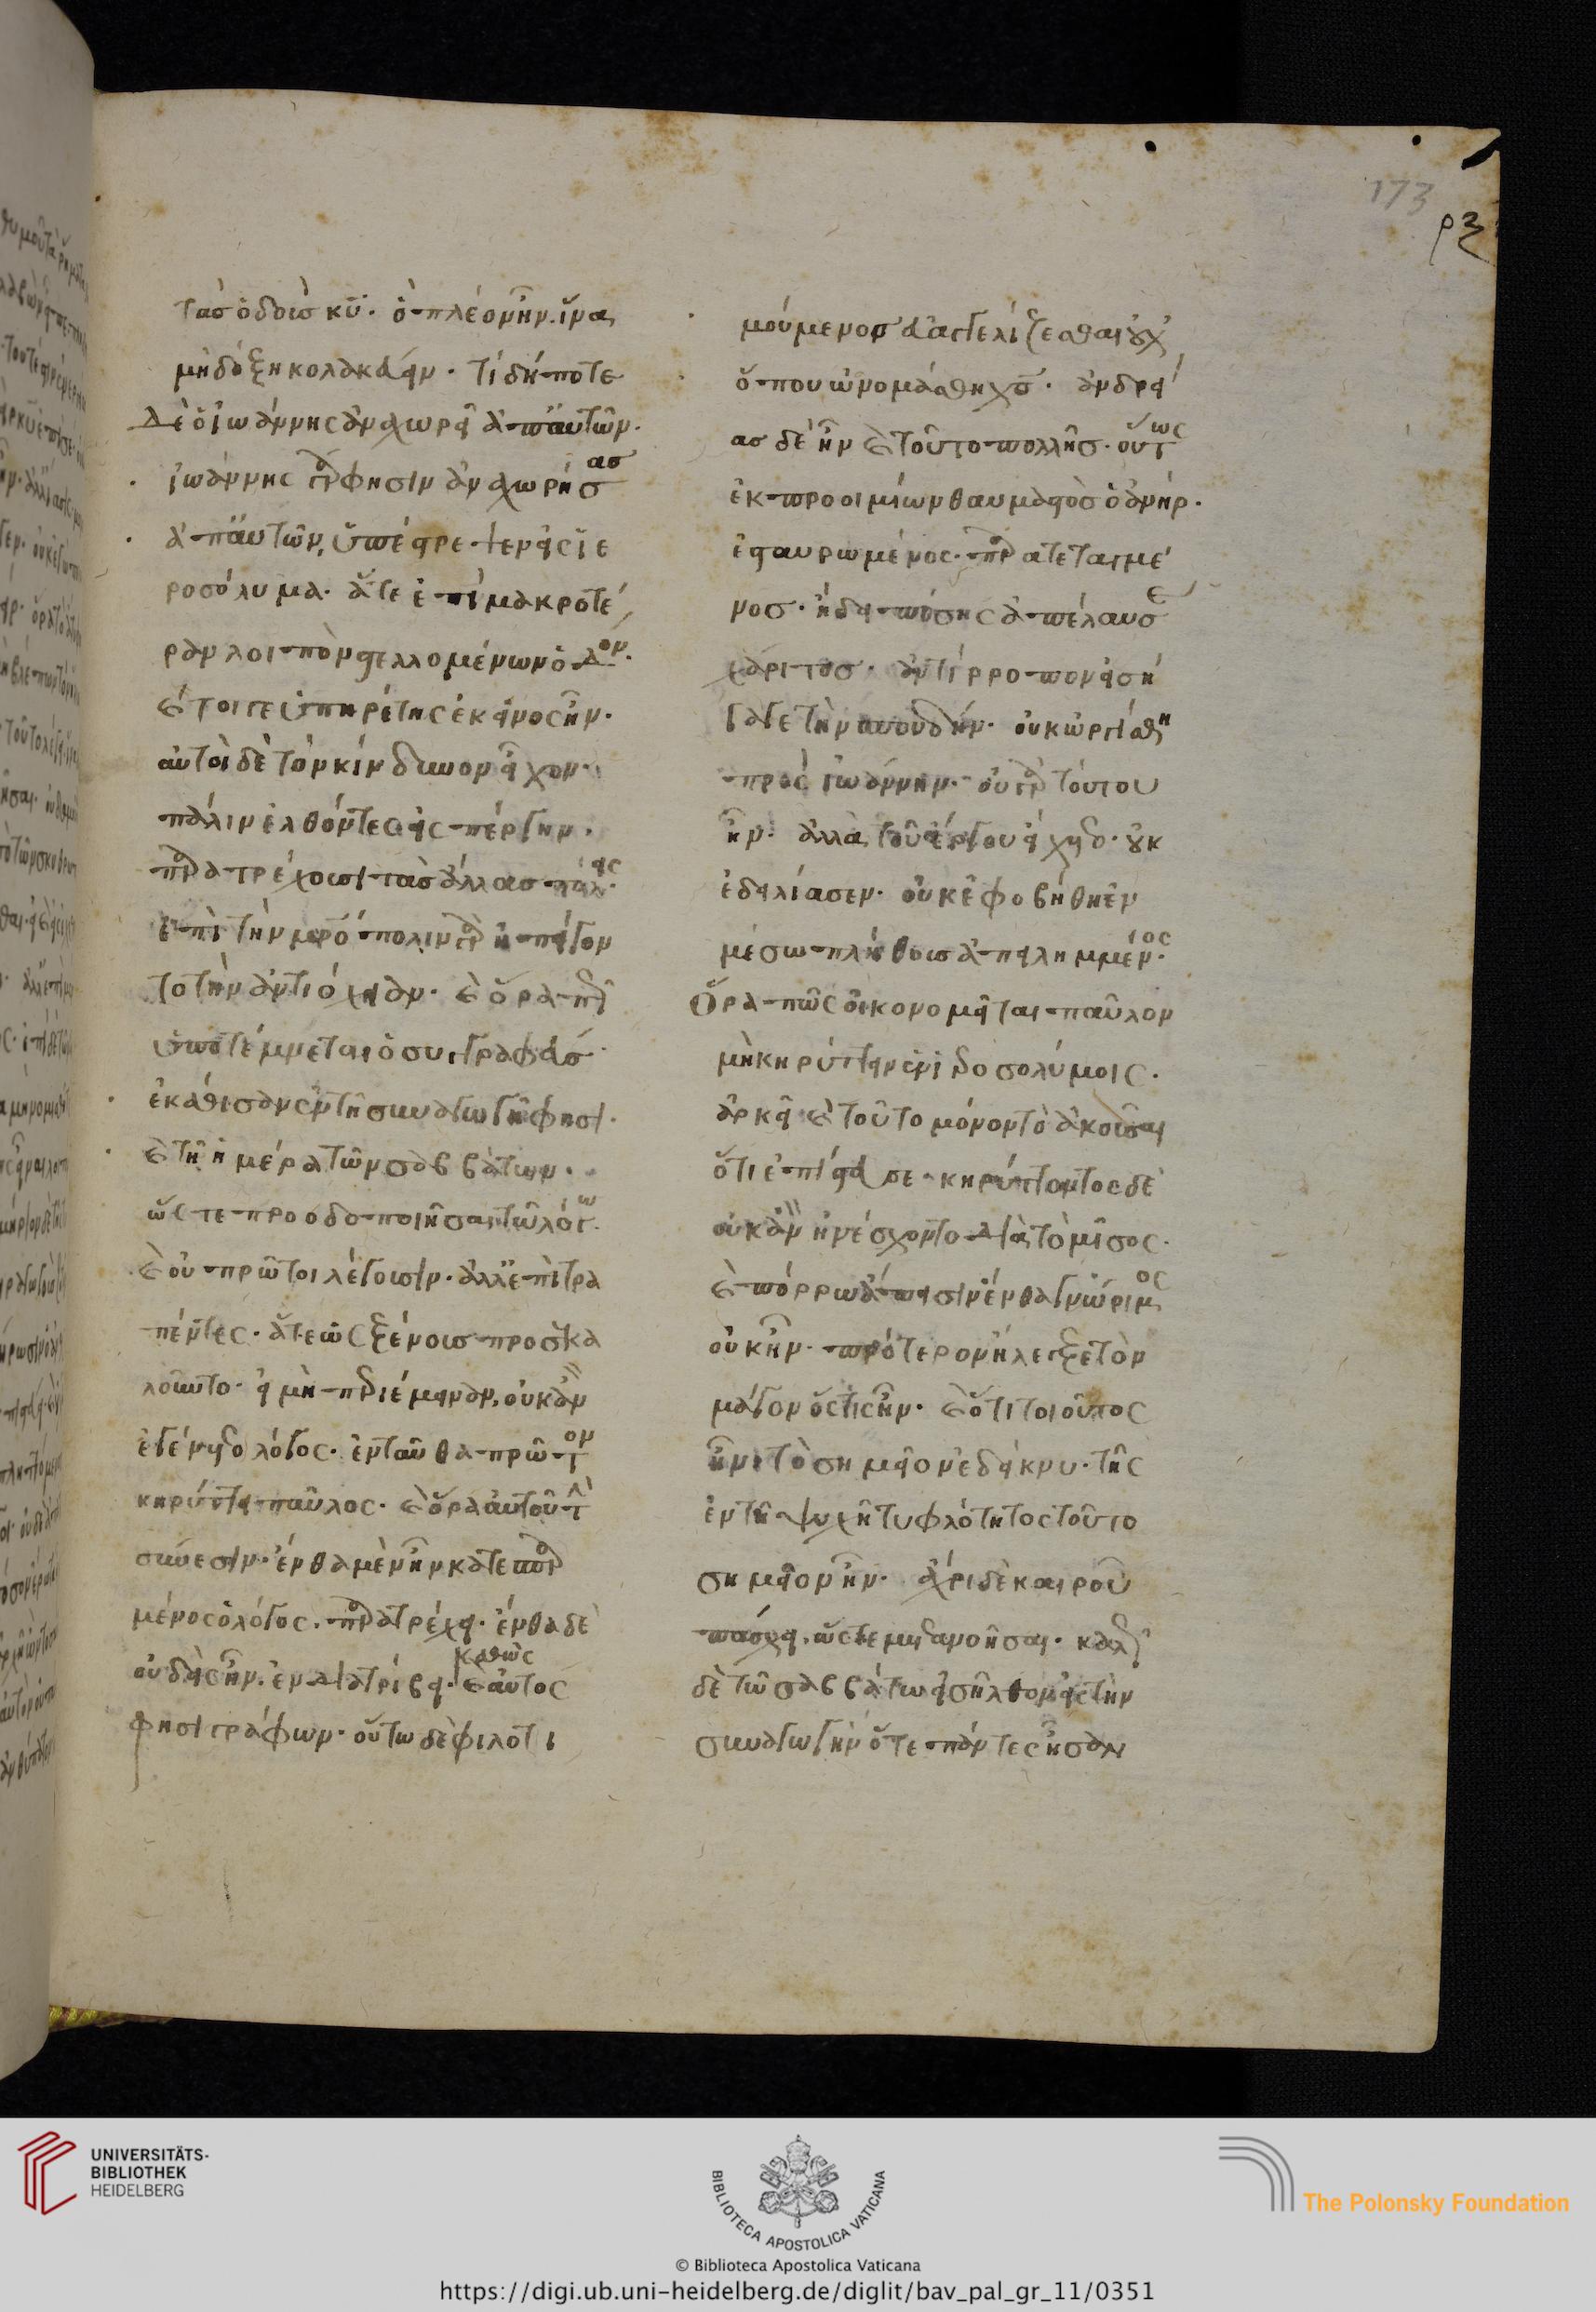 173
ρξ
τὰσ ὁδοὺσ κῦ. ὃ πλέον ἦν. ἵνα
μὴ δόξη κολακεύειν. τί δή ποτε
δὲ ὁ ἰωάννης ἀναχωρεῖ ἀπ αὐτῶν.
ἰωάννης γάρ φησιν ἀναχωρήσασ
ἀπ αὐτῶν, ὑπέστρεψεν εἰς ἱε
ροσόλυμα. ἅτε ἐπὶ μακροτέ
ραν λοιπὸν στελλομένων ὁδόν.
καίτοι γε ὑπηρέτης ἐκεῖνος ἦν.
αὐτοὶ δὲ τὸν κίνδυνον εἶχον.
πάλιν ἐλθόντες εἰς πέργην.
παρατρέχουσι τὰσ ἄλλασ πόλεις.
ἐπὶ τὴν μητρόπολιν γὰρ ἠπείγον
το τὴν ἀντιόχειαν. καὶ ὅρα πῶς
ὑποτέμνεται ὁ συγγραφεύσ.
ἐκάθισαν ἐν τῆ συναγωγῆ φησι.
καὶ τῆ ἡμέρα τῶν σαββάτων.
ὥςτε προοδοποιῆσαι τῶ λόγω.
καὶ οὐ πρῶτοι λέγουσιν. ἀλλ ἐπιτρα
πέντες. ἅτε ὡς ξένουσ προσεκα
λοῦντο. εἰ μὴ περιέμειναν, οὐκ ἂν
ἐγένετο λόγος. ἐνταῦθα πρῶτον
κηρύττει παῦλος. καὶ ὅρα αὐτοῦ τὴν
σύνεσιν. ἔνθα μὲν ἦν κατεσπαρ
μένος ὁ λόγος. παρατρέχει. ἔνθα δὲ
οὐδεὶς ἦν. ἐνδιατρίβει. καθὼς καὶ αὐτος
φησι γράφων. οὕτω δὲ φιλοτι
μούμενοσ εὐαγγελίζεσθαι οὐχ
ὅπου ὠνομάσθη χσ. ἀνδρεί
ασ δὲ ἦν καὶ τοῦτο πολλῆσ. οὕτως
ἐκ προοιμίων θαυμαστὸσ ὁ ἀνήρ.
ἐσταυρωμένος. παρατεταγμέ
νοσ. ἤδει πόσης ἀπέλαυσε
χάριτοσ. ἀντίρροπον εἰσή
γαγε τὴν σπουδήν. οὐκ ὠργίσθη
πρὸς ἰωάννην. οὐ γὰρ τούτου
ἦν. ἀλλὰ τοῦ ἔργου εἴχετο. οὐκ
ἐδειλίασεν. οὐκ ἐφοβήθη ἐν
μέσω πλήθουσ ἀπειλημμένος.
Ὅρα πῶς οἰκονομεῖται παῦλον
μὴ κηρύττειν ἐν ἱεροσολύμοις.
ἀρκεῖ καὶ τοῦτο μόνον τὸ ἀκοῦσαι
ὅτι ἐπίστευσε. κηρύττοντος δὲ
οὐκ ἂν ἠνέσχοντο διὰ τὸ μῖσος.
καὶ πόρρω ἄπεισιν ἔνθα γνώριμος
οὐκ ἦν. πρότερον ἤλεγξε τὸν
μάγον ὅςτις ἦν. καὶ ὅτι τοιοῦτος
ἦν τὸ σημεῖον ἐδείκνυ. τῆς
ἐν τῆ ψυχῆ τυφλότητος τοῦτο
σημεῖον ἦν. ἄχρι δὲ καιροῦ
πάσχει, ὥςτε μετανοῆσαι. καλῶς
δὲ τῶ σαββάτω εἰσῆλθον εἰς τὴν
συναγωγὴν ὅτε πάντες ἦσαν
UNIVERSITÄTS-
BIBLIOTHEK
HEIDELBERG
BIBLIOTECA APOSTOLICA VATICANA
The Polonsky Foundation
© Biblioteca Apostolica Vaticana
https://digi.ub.uni-heidelberg.de/diglit/bav_pal_gr_11/0351